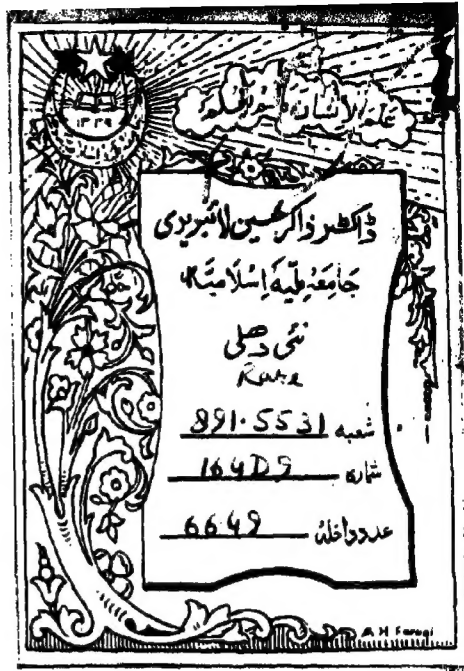 ۱۳۳۹
عَلَّمَ الْاِنْسَانَ مَا لَمْ يَعْلَمْ
ڈاکٹر ذاکر حسین لائبریری
جَامِعَہ مِلّیَہ اِسْلَامِیَہ
نئی دھلی
Rare
شعبہ 891.5531
شمارہ 164D9
عدد داخلہ 6649
A H Farugi